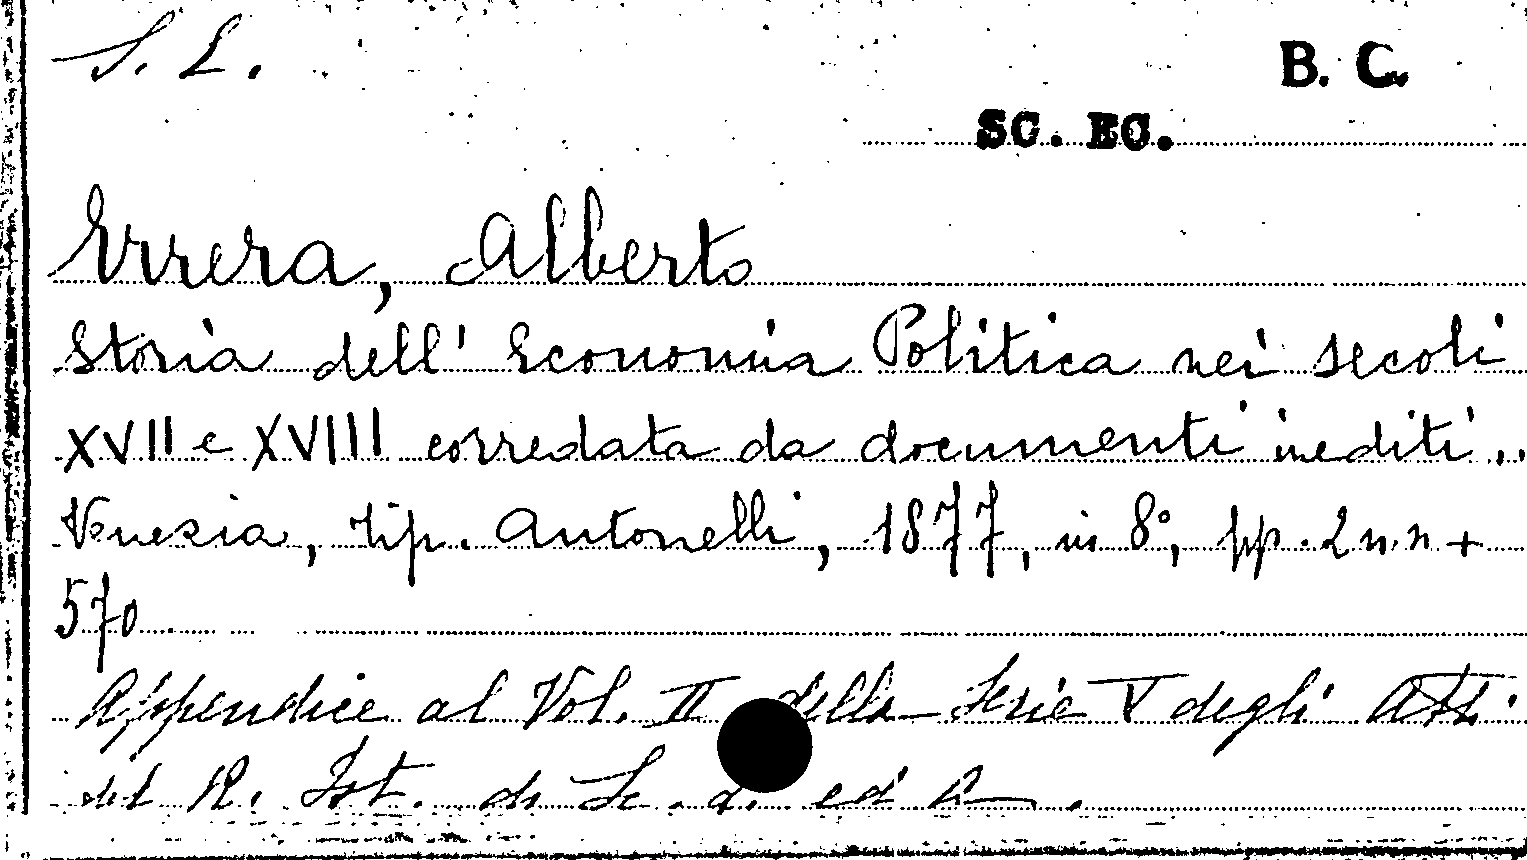 S. E. B. C.
SC. EC.
Errera, Alberto
Storia dell' Economia Politica nei secoli
XVII e XVIII corredata da documenti inediti..
Venezia, tip. Antonelli, 1877, in 8°, pp. 2 n.n +
570.
Appendice al Vol. II della Serie V degli Atti.
del R. Ist. di Sc. a. ed